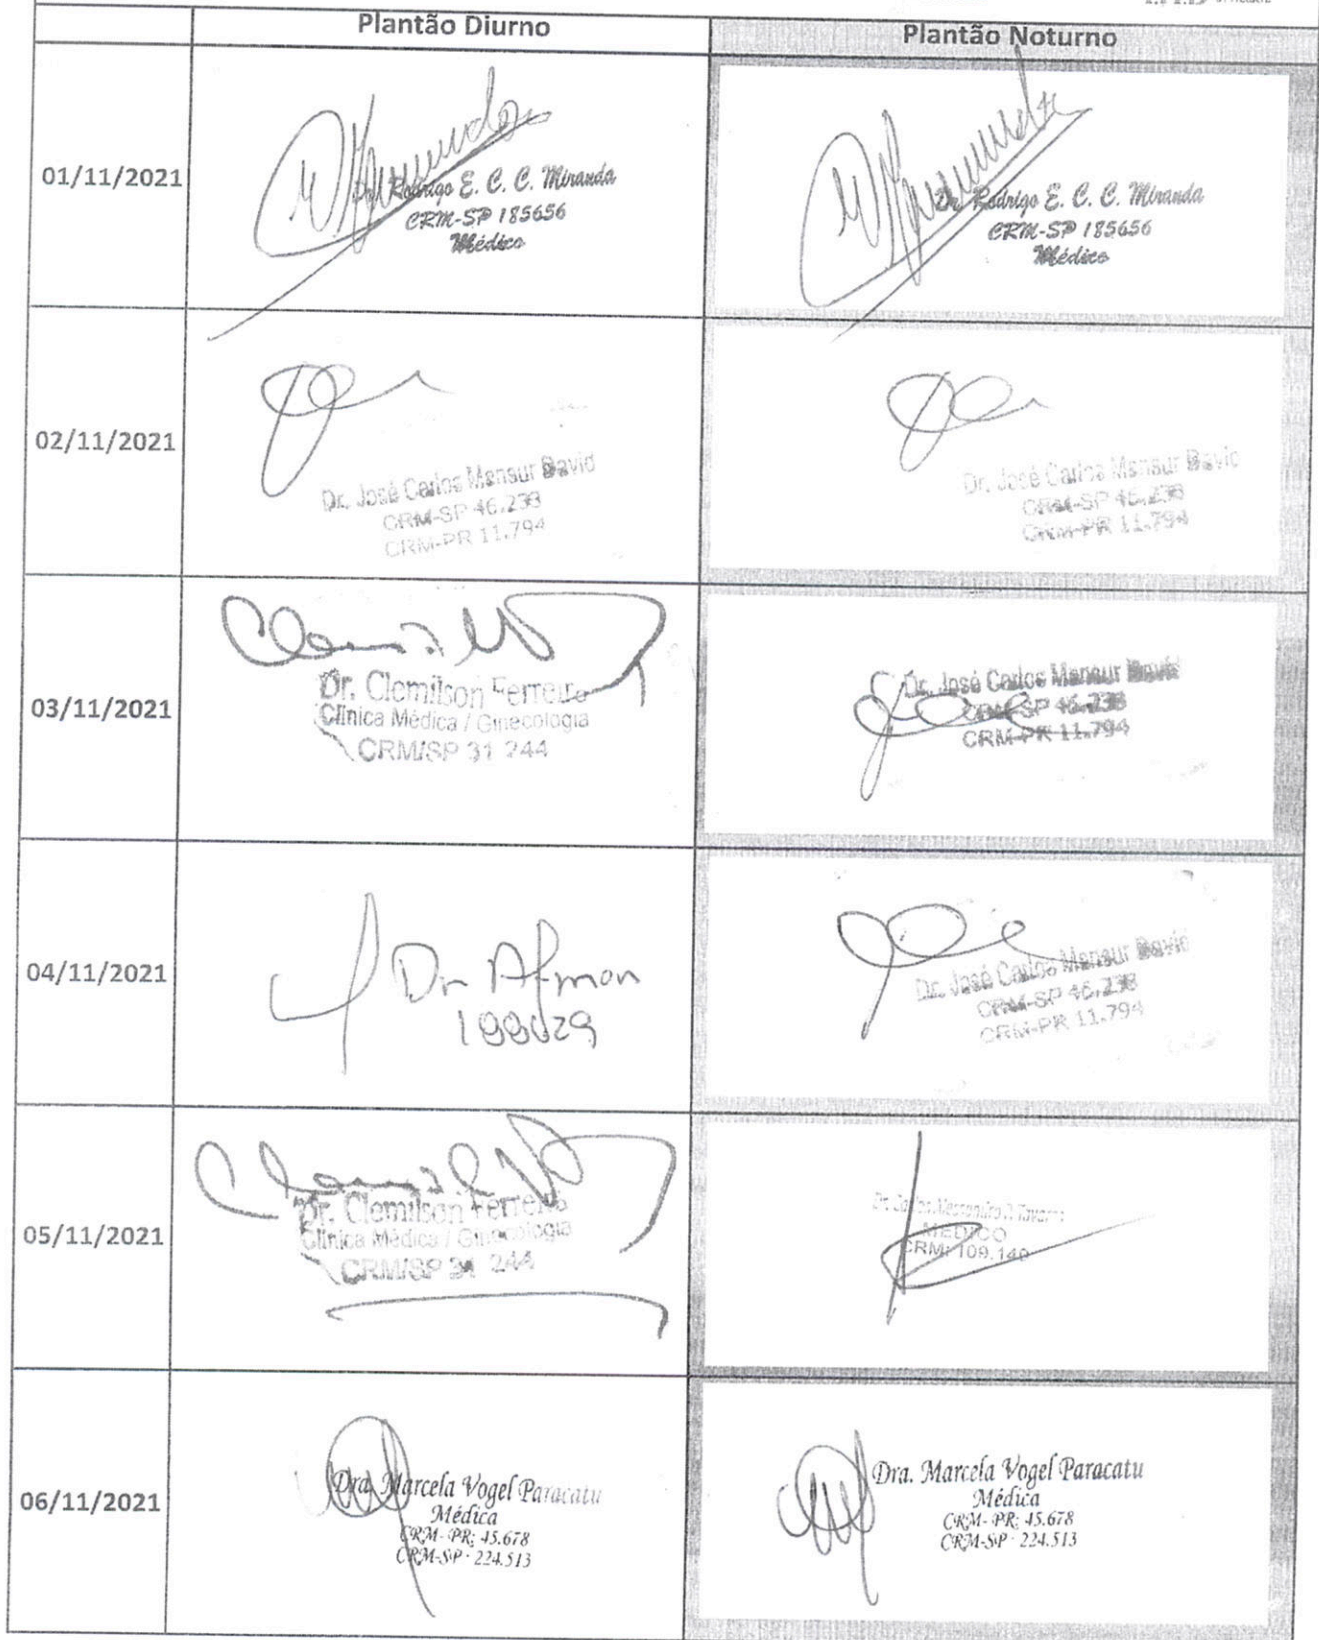 Plantão Diurno
Plantão Noturno
01/11/2021
Dr. Rodrigo E. C. C. Miranda
CRM-SP 185656
Médico
Dr. Rodrigo E. C. C. Miranda
CRM-SP 185656
Médico
02/11/2021
Dr. José Carlos Mansur David
CRM-SP 46.238
CRM-PR 11.794
Dr. José Carlos Mansur David
CRM-SP 46.238
CRM-PR 11.794
03/11/2021
Dr. Clemilson Ferreira
Clínica Médica / Ginecologia
CRM/SP 31 244
Dr. José Carlos Mansur David
CRM-SP 46.238
CRM-PR 11.794
04/11/2021
Dr
Dr. José Carlos Mansur David
CRM-SP 46.238
CRM-PR 11.794
05/11/2021
Dr. Clemilson Ferreira
Clínica Médica / Ginecologia
CRM/SP 31 244
MEDICO
CRM: 109.140
06/11/2021
Dra. Marcela Vogel Paracatu
Médica
CRM-PR: 45.678
CRM-SP - 224.513
Dra. Marcela Vogel Paracatu
Médica
CRM-PR: 45.678
CRM-SP - 224.513